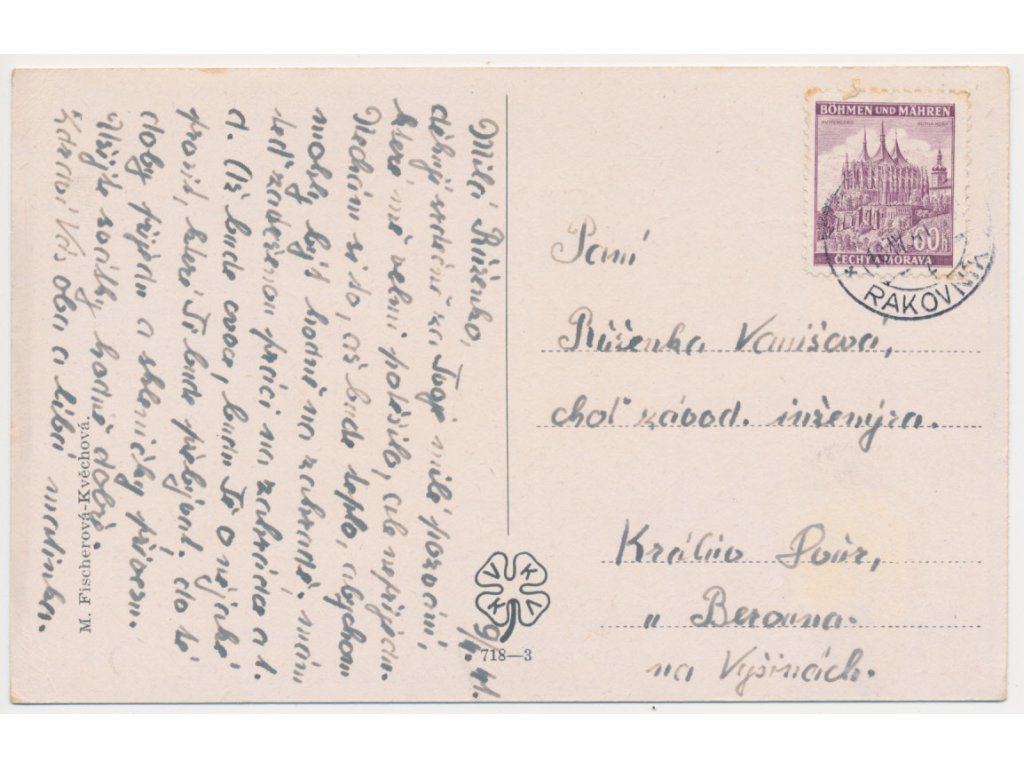 Milá Růženko,
děkuji srdečně za Tvoje milé pozvání,
které mě velmi potěšilo, ale nepřijedu.
Nechám si to, až bude teplo, abychom
mohly být hodně na zahradě. mám
teď zadrženou práci na zahrádce a t.
d. Až bude ovoce, budu Tě o nějaké
prosit, které Ti bude přebývat. do té
doby přijedu a skleničky přivezu.
Užijte svátky hodně dobře.
Zdraví Vás oba a líbá
maminka.
9/4. 41.
M. Fischerová-Kvěchová.
VKKV
718—3
BÖHMEN UND MÄHREN
60h
ČECHY A MORAVA
RAKOVNÍK
Paní
Růženka Vanišova,
choť závod. inženýra.
Králův Dvůr,
u Berouna.
na Vyšinách.